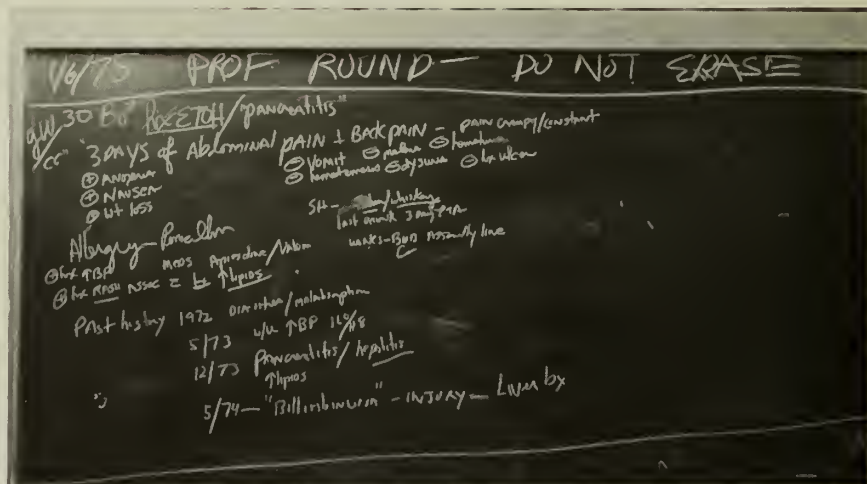 1/6/75 PROF ROUND — DO NOT ERASE
30 ETOH/"pancreatitis"
CC "3 DAYS of Abdominal PAIN + BACK PAIN — PAIN crampy/constant
⊕ ANOREXIA ⊖ VOMIT ⊖ melena
⊕ NAUSEA ⊖ hematemesis ⊖ dysuria ⊖ hx ulcer
⊕ wt loss
SH — /whiskey
last drink 3 days
works - assembly line
Allergy — Penicillin
⊕ hx ↑BP MEDS Apresoline/Valium
⊕ hx RASH ASSOC hx ↑lipids
PAst history 1972 Diarrhea/malabsorption
5/73 w/u ↑BP
12/73 Pancreatitis/hepatitis
↑lipids
5/74 — "Billirubinuria" — INJURY — Liver bx